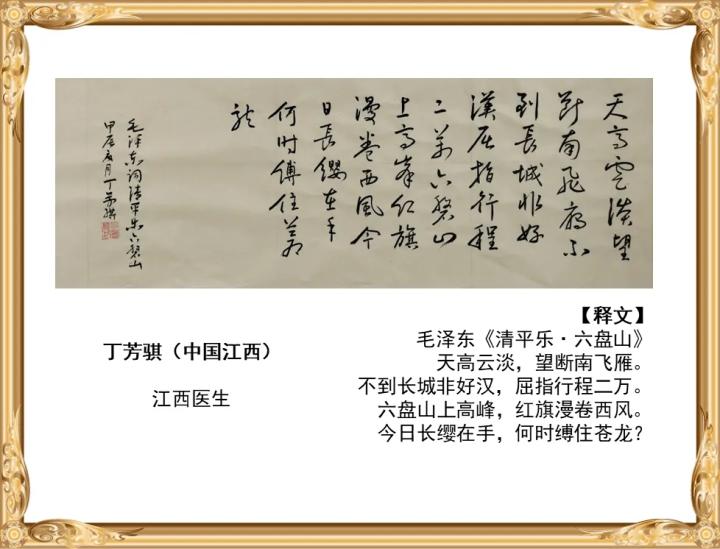 天高雲淡望
断南飛雁不
到長城非好
漢屈指行程
二萬六盤山
上高峰红旗
漫卷西風今
日長纓在手
何时縛住苍
龙
毛泽东词清平乐六盤山
甲辰夏月丁芳骐
丁芳骐（中国江西）
江西医生
【释文】
毛泽东《清平乐·六盘山》
天高云淡，望断南飞雁。
不到长城非好汉，屈指行程二万。
六盘山上高峰，红旗漫卷西风。
今日长缨在手，何时缚住苍龙？